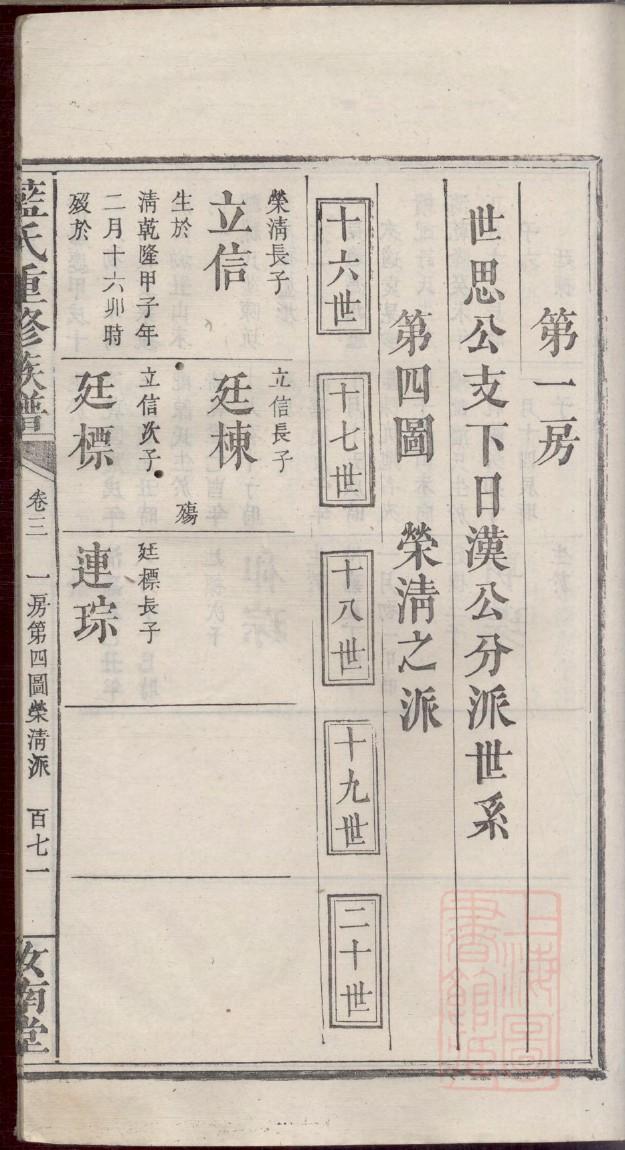 第一房
世思公支下日漢公分派世系
第四圖 榮清之派
十六世
十七世
十八世
十九世
二十世
榮清長子
立信
生於
清乾隆甲子年
二月十六卯時
歿於
立信長子
廷棟
殤
立信次子
廷標
廷標長子
連琮
藍氏重修族譜
卷三 一房第四圖榮清派 百七一
汝南堂
上海圖書館藏